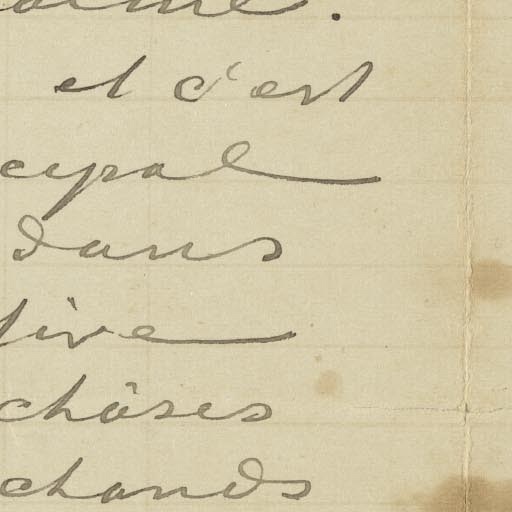 et c'est
cipal
dans
tive
chôses
chands